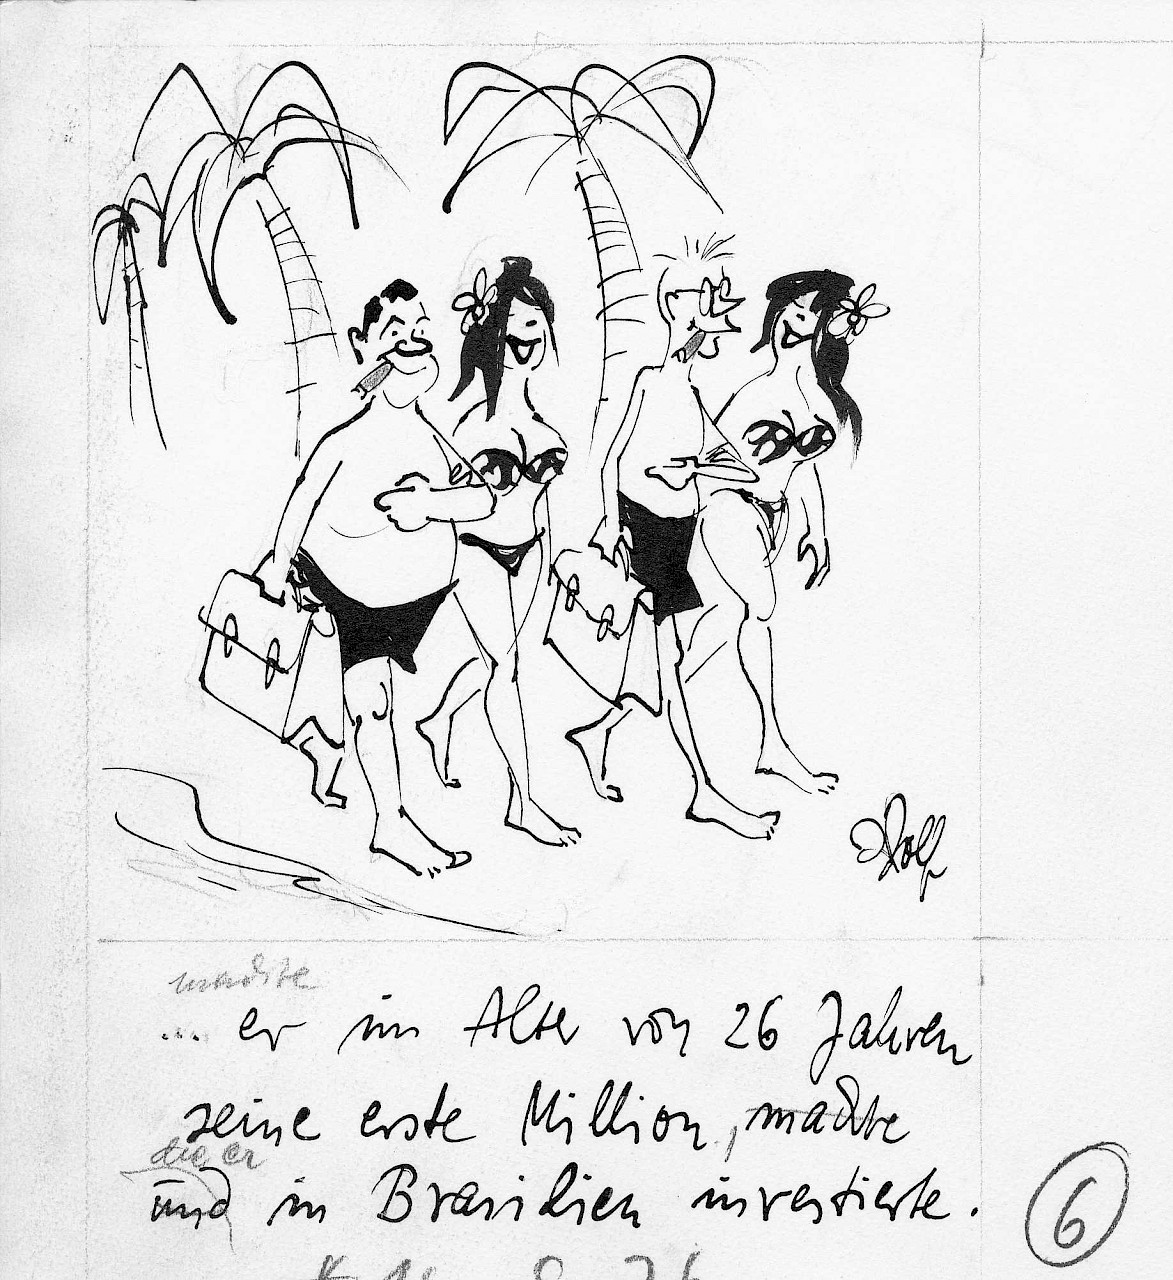 Rolf
machte
... er im Alter von 26 Jahren
seine erste Million, machte
die er
und in Brasilien investierte.
6